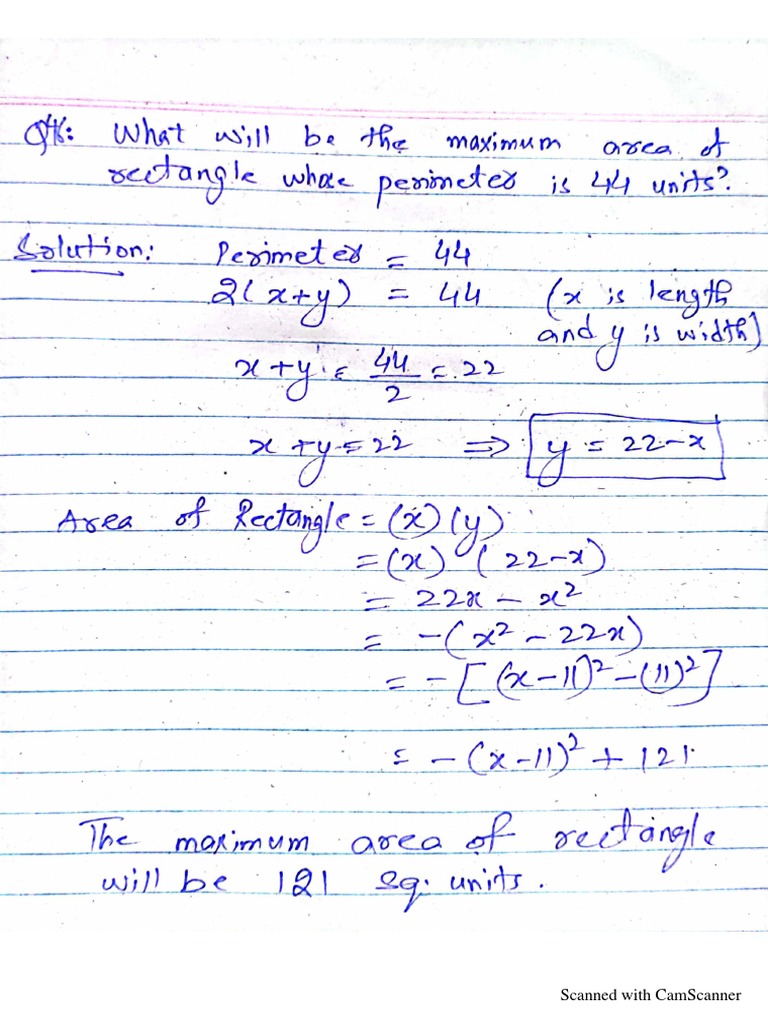 Q16: What will be the maximum area of
rectangle whose perimeter is 44 units?
Solution: Perimeter = 44
2(x+y) = 44 (x is length
and y is width)
x+y = 44/2 = 22
x+y=22 ⇒ y = 22-x
Area of Rectangle = (x)(y)
= (x) (22-x)
= 22x - x²
= -(x² - 22x)
= -[(x-11)² - (11)²]
= -(x-11)² + 121
The maximum area of rectangle
will be 121 sq. units.
Scanned with CamScanner